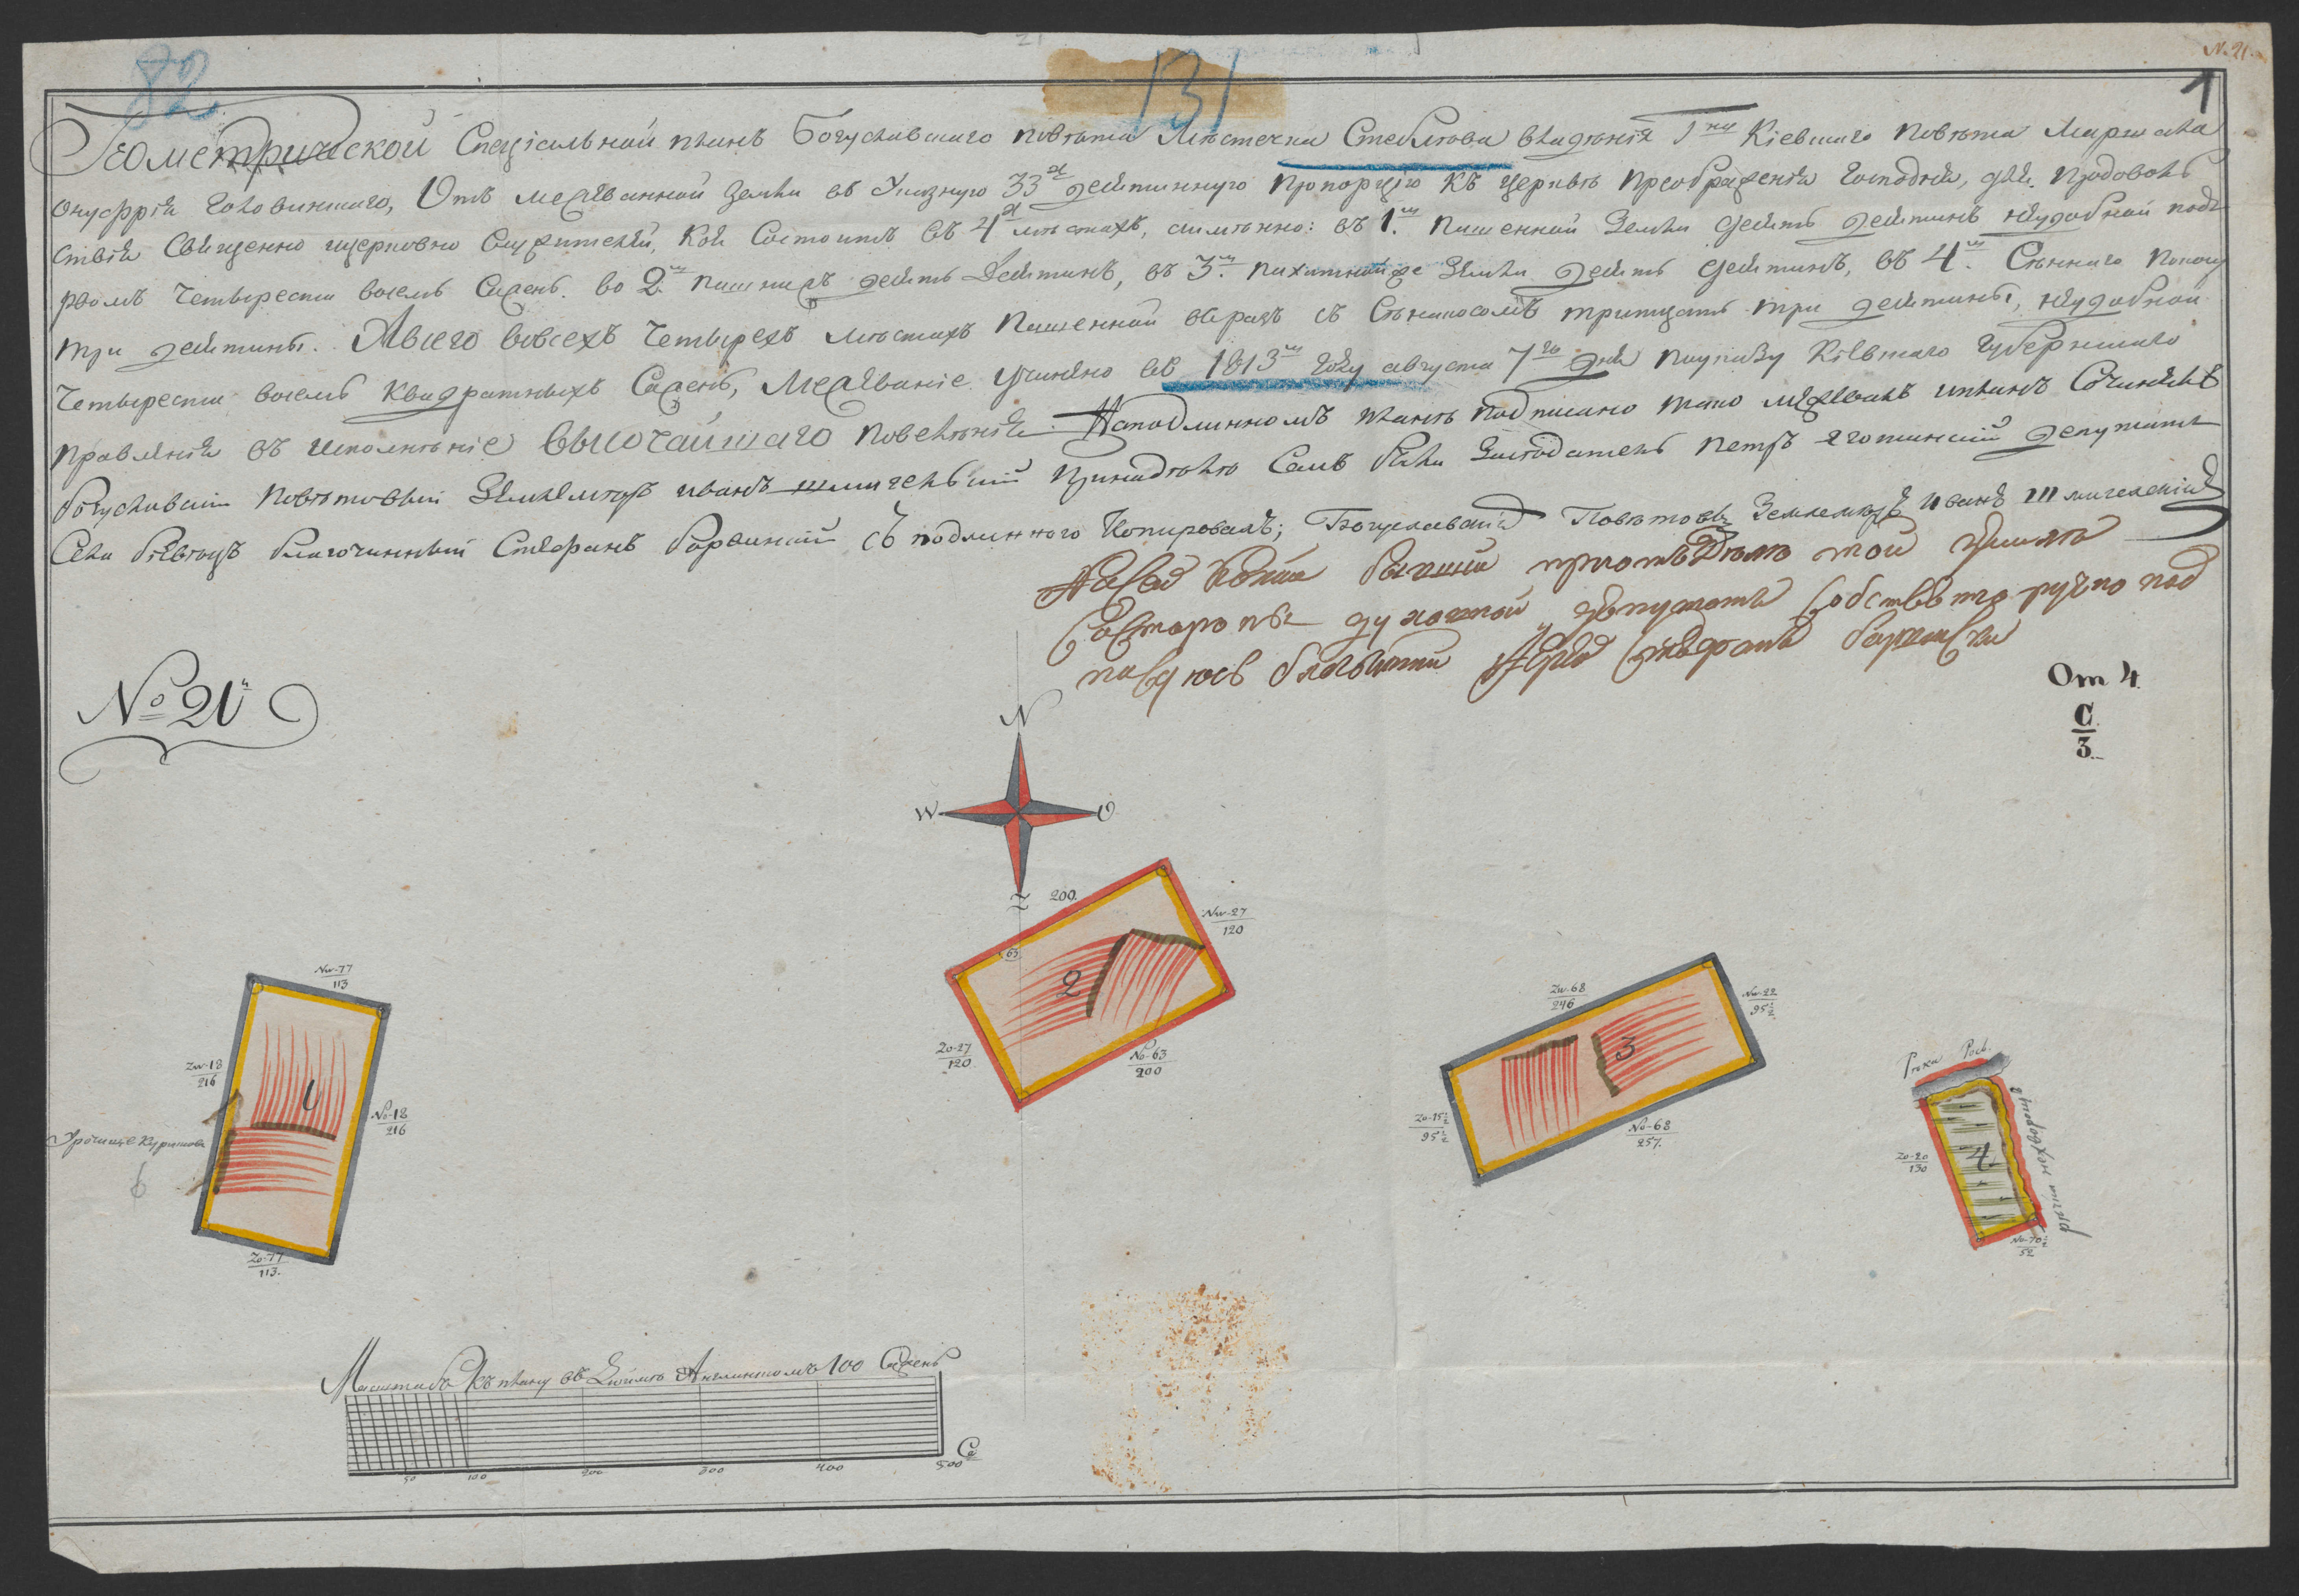 82
131
N. 21.
1
Геометрической Спеціальной планъ Богуславскаго повѣта Мѣстечка Стеблѣва владѣнія Гна Кіевскаго повѣта Маршала
Онуфрія Головинскаго, Отмежеванной Земли въ Указную 33х десятинную пропорцію къ церквѣ Преображенія Господня, для Продоволь
ствія Священно ицерковно Служителей, Кои Состоитъ въ 4х мѣстахъ, аимѣнно: въ 1м. Пашенной Земли десять десятинъ неудобной подъ
рвомъ четыреста восемь Сажень. во 2м пашни жъ десять Десятинъ, въ 3м. пахатнойже Земли десять десятинъ, въ 4м. Сѣннаго покосу
три десятины. Авсего вовсехъ четырехъ мѣстахъ пашенной въразъ съ Сѣнокосомъ тритцать три десятины, неудобной
четыреста восемь квадратныхъ Сажень, Межеваніе учинено въ 1813м году августа 7го дня поуказу Кіевскаго губернскаго
правленія въ исполненіе высочайшаго повелѣнія. Наподлинномъ планѣ подписано тако межевалъ ипланъ Сочинялъ
богуславскій повѣтовый Землемѣръ иванъ шмигельскій принадлежо Семъ были Депутатъ петръ депутатъ
Села благочинный Стефанъ съ подлинного Копировалъ; Богуславскій Повѣтовый Землемѣръ Иванъ Шмигельскій
бытии при той
Состороны духовной депутатъ Собственно ручно под
Іерей Стефанъ
№ 21й
От 4.
С
3.
N
W
O
Z
200.
Nw-27
120
63
2
Zo-27
120
No-63
200
Nw-77
113
Zw-18
216
1
No-18
216
Урочище
Zo-77
113.
Zw-68
246
Nw-22
95½
3
Zo-15½
95½
No-68
257.
Рѣка Рось.
4
Zo-20
130
No-70½
52
Масштабъ Къ плану въ Дюймѣ Аглинскомъ 100 Сажень
50 100 200 300 400 500 Са